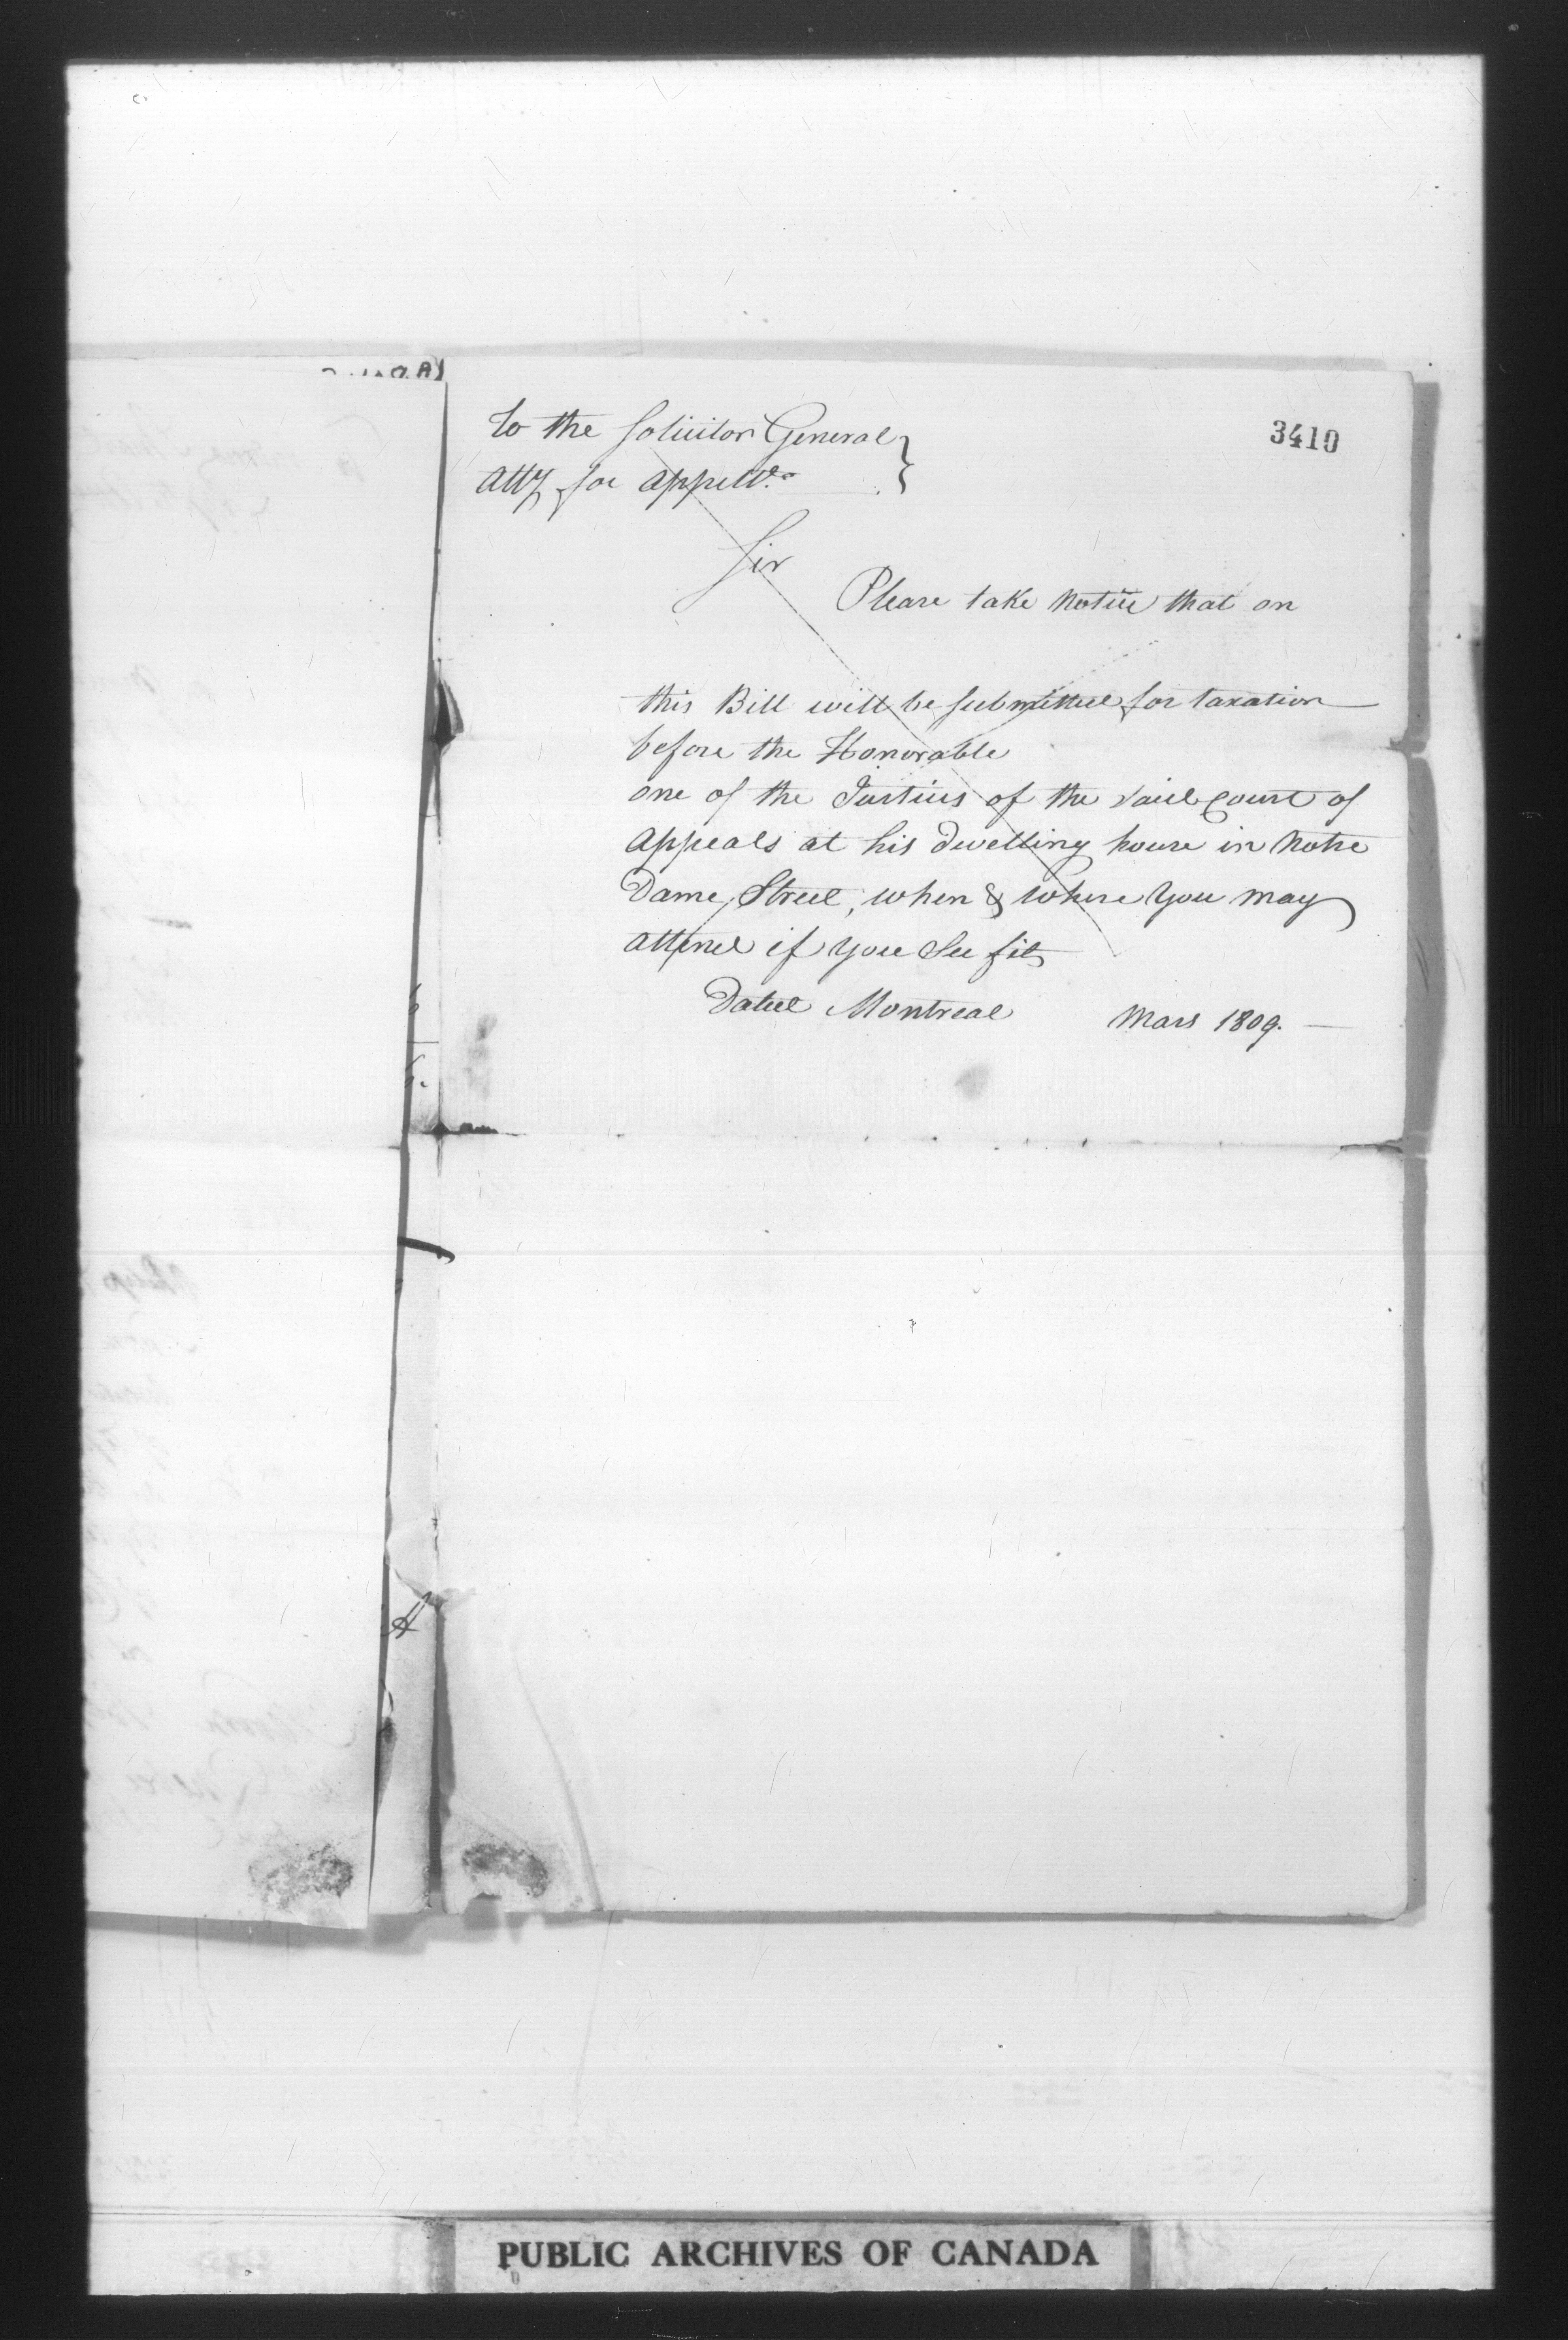 3410
To the Solicitor General
Atty for Appellts
Sir
Please take Notice that on
this Bill will be submitted for taxation
before the Honorable
one of the Justices of the said Court of
Appeals at his dwelling house in Notre
Dame Street, when & where you may
attend if you see fit
Dated Montreal Mars 1809.
PUBLIC ARCHIVES OF CANADA